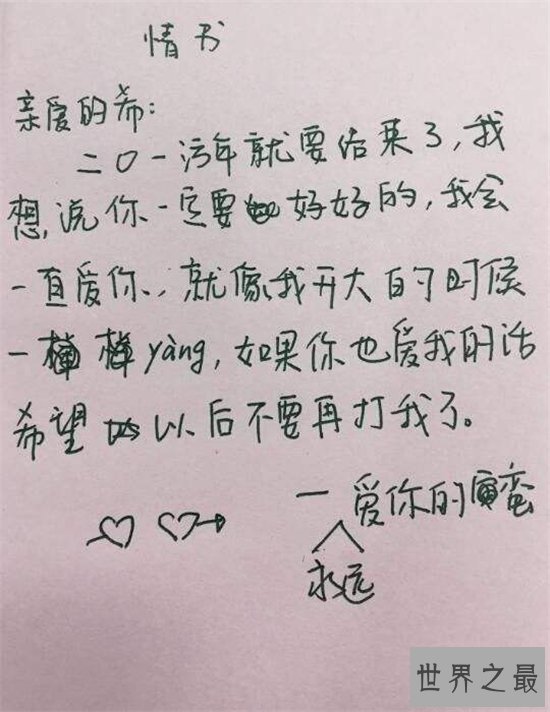 情书
亲爱的希:
二〇一污年就要结束了,我
想说你一定要好好的,我会
一直爱你,就像我开大的时候
一样yàng,如果你也爱我的话
希望以后不要再打我了。
一永远爱你的蛮
世界之最